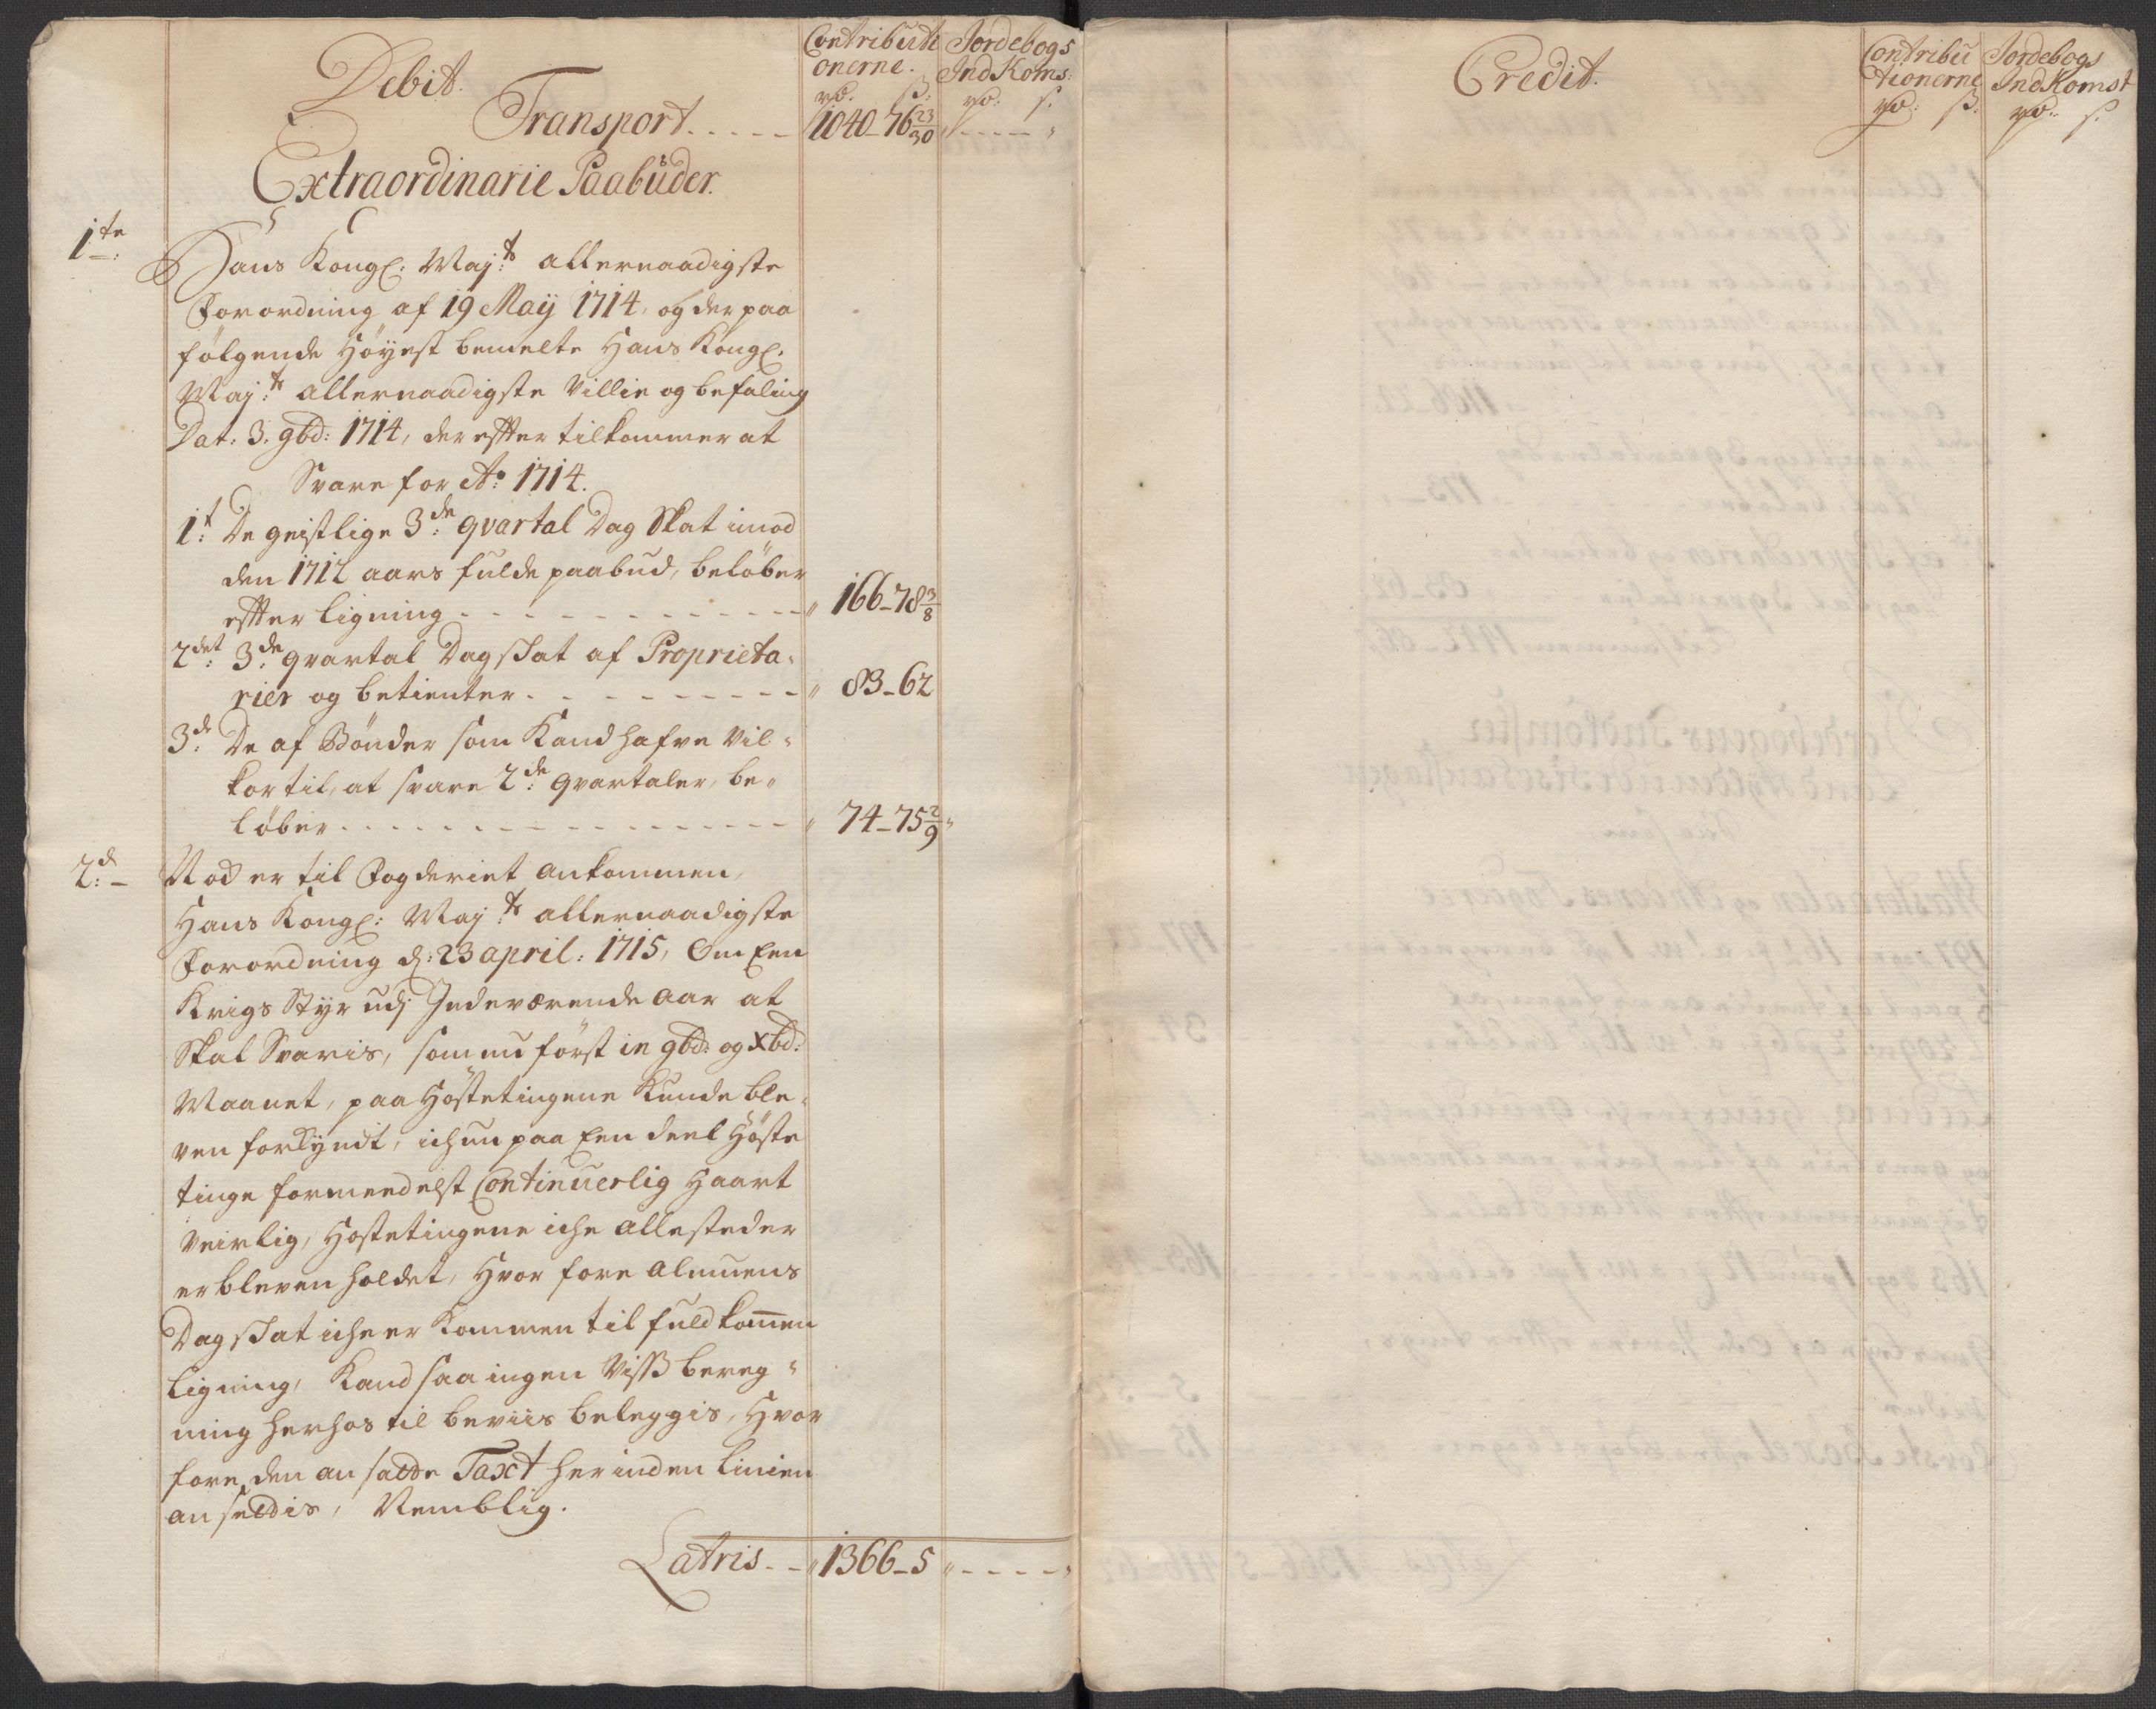 Debit.
Contributi
onerne.
rd. ß:
Jordebogs
IndKoms:
rd: s.
Transport. - - - - 1040-76 23/30 " - - - - "
Extraordinarie Paabuder.
1te: Hans Kongl: Maj:ts allernaadigste
Forordning af 19 Maij 1714, og der paa
følgende Høyest bemelte Hans Kongl.
Maj:ts allernaadigste Villie og befaling
Dat: 3. 9bd: 1714, der effter tilkommer at
Svare for Ao: 1714.
1t: De geistlige 3de: qvartal Dag Skat imod
den 1712 aars fulde paabud, beløber
effter Ligning - - - - - - - - " 166-78 3/8
2det: 3de: qvartal Dagskat af Proprieta-
rier og betienter - - - - - - - " 83-62
3de: De af Bønder som Kand hafve Vil-
kor til, at svare 2de: qvartaler, be-
løber - - - - - - - - - - - " 74-75 2/9 "
2d:- Nock er til Fogderiet ankommen,
Hans Kongl: Maj:ts allernaadigste
Forordning d: 23 april: 1715, Om Een
Krigs Styr udj Indeværende Aar at
Skal Svaris, som nu først in 9bd: og Xbd:
Maanet, paa Høstetingene Kunde ble-
ven forkyndt, ichun paa Een deel Høste
tinge formeedelst Continuerlig Haart
Veirlig, Høstetingene iche allesteder
er bleven holdet, Hvor fore Almuens
Dagskat iche er Kommen til fuldkommen
Ligning, Kand saa ingen Viss bereg-
ning herhos til beviis beleggis, Hvor
fore den ansatte Taxt her inden Linien
ansettis, Nemblig.
Latris - - " 1366-5 " - - - - "
Credit.
Contribu
tionerne
rd: ß.
Jordebogs
IndKomst
rd: s.